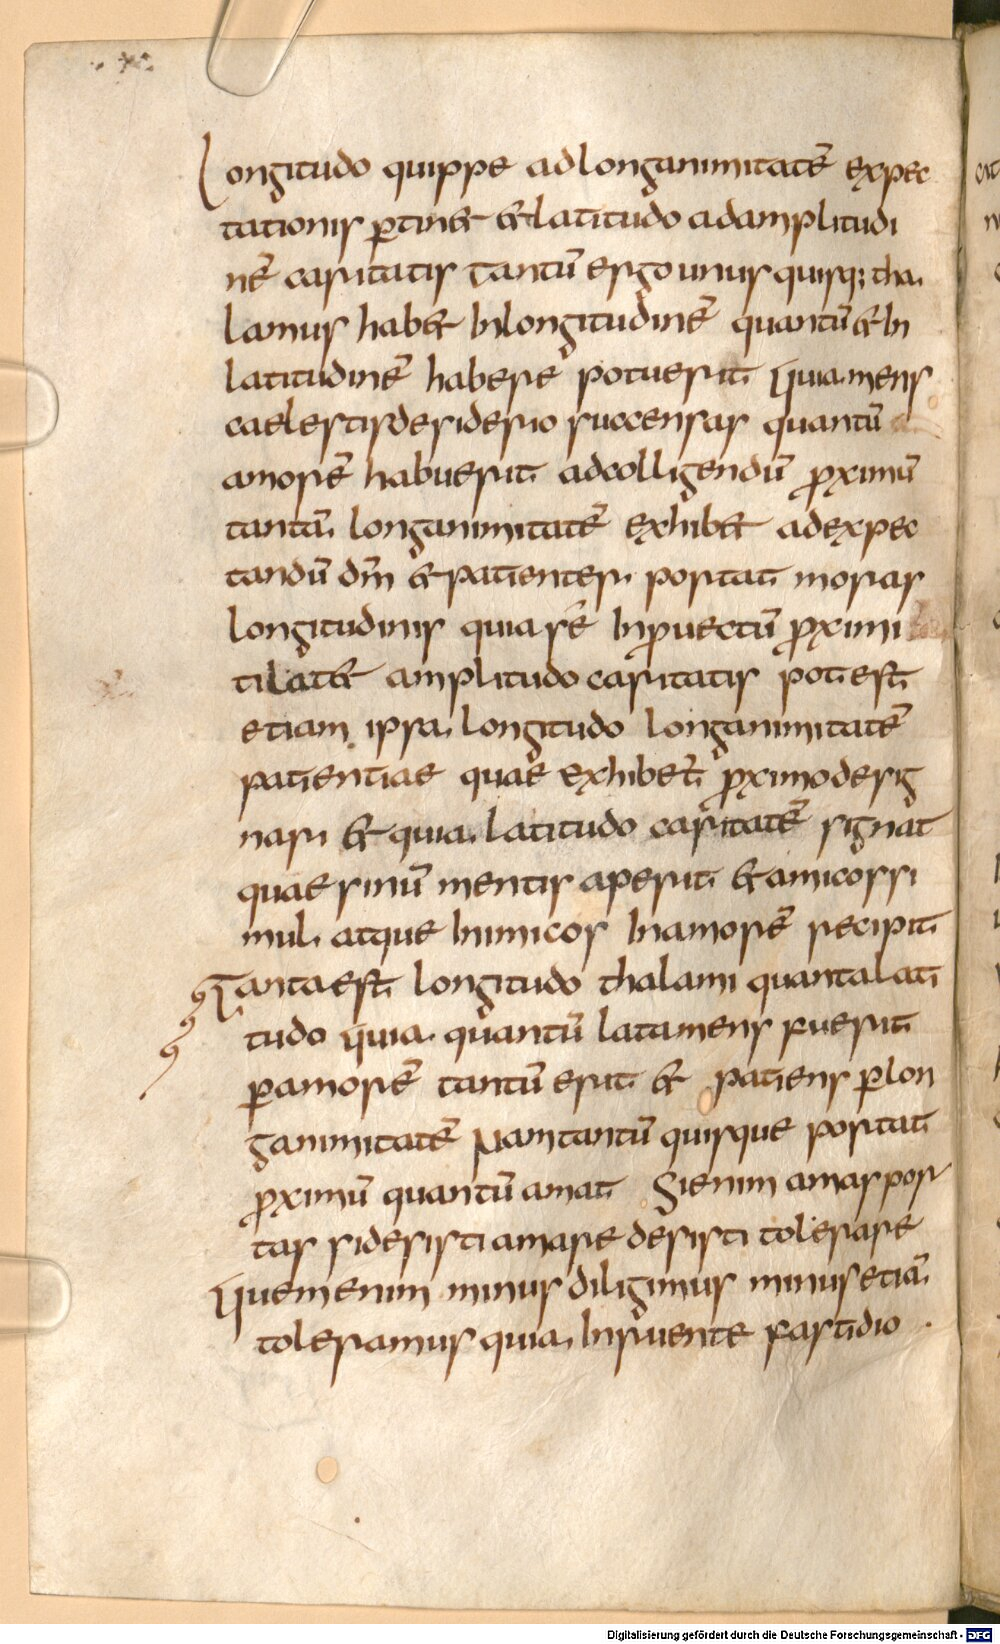 Longitudo quippe ad longanimitatē expec
tationis ꝑtin& & latitudo ad amplitudi
nē caritatis Tantū ergo unus quisq; tha
lamus hab& In longitudinē quantū & In
latitudinē habere potuerit Quia mens
caelestis desiderio succensas quantū
amorē habuerit ad colligendū ꝓximū
tantā longanimitatē exhib& ad expec
tandū dm̄ & patienter portat moras
longitudinis quia se In ꝓuectū ꝓximi
tilat& amplitudo caritatis potest
etiam ipsa longitudo longanimitatē
patientiae quae exhibet ꝓximo desig
nari & quia latitudo caritatē signat
quae sinū mentis aperit & amicos si
mul atque Inimicos In amorē recipit
Tanta est longitudo thalami quanta lati
tudo Quia quantū lata mens fuerit
ꝑ amorē tantū erit & patiens ꝑ lon
ganimitatē Nam tantū quisque portat
ꝓximū quantū amat Si enim amas por
tas si desisti amare desisti tolerare
Quem enim minus diligimus minus etiā
toleramus quia Inruente fastidio
Digitalisierung gefördert durch die Deutsche Forschungsgemeinschaft - DFG